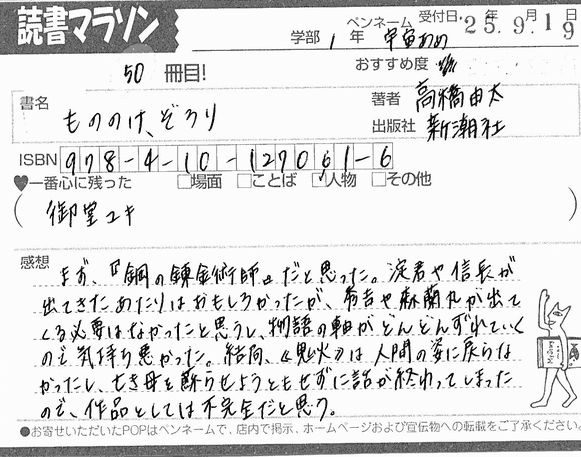 読書マラソン
学部 1年 ペンネーム 宇宙あめ 受付日 '25年9月19日
50 冊目! おすすめ度
書名 もののけ、ぞろり 著者 高橋由太
出版社 新潮社
ISBN 978-4-10-127061-6
♥一番心に残った □場面 □ことば ☑人物 □その他
(御堂ユキ
感想 まず、『鋼の錬金術師』だと思った。淀君や信長が
出てきたあたりはおもしろかったが、秀吉や森蘭丸が出て
くる必要はなかったと思うし、物語の軸がどんどんずれていく
ので気持ち悪かった。結局、《鬼火》は人間の姿に戻らな
かったし、亡き母を蘇らせようともせずに話が終わってしまった
ので、作品としては不完全だと思う。
●お寄せいただいたPOPはペンネームで、店内で掲示、ホームページおよび宣伝物への転載をご了承ください。